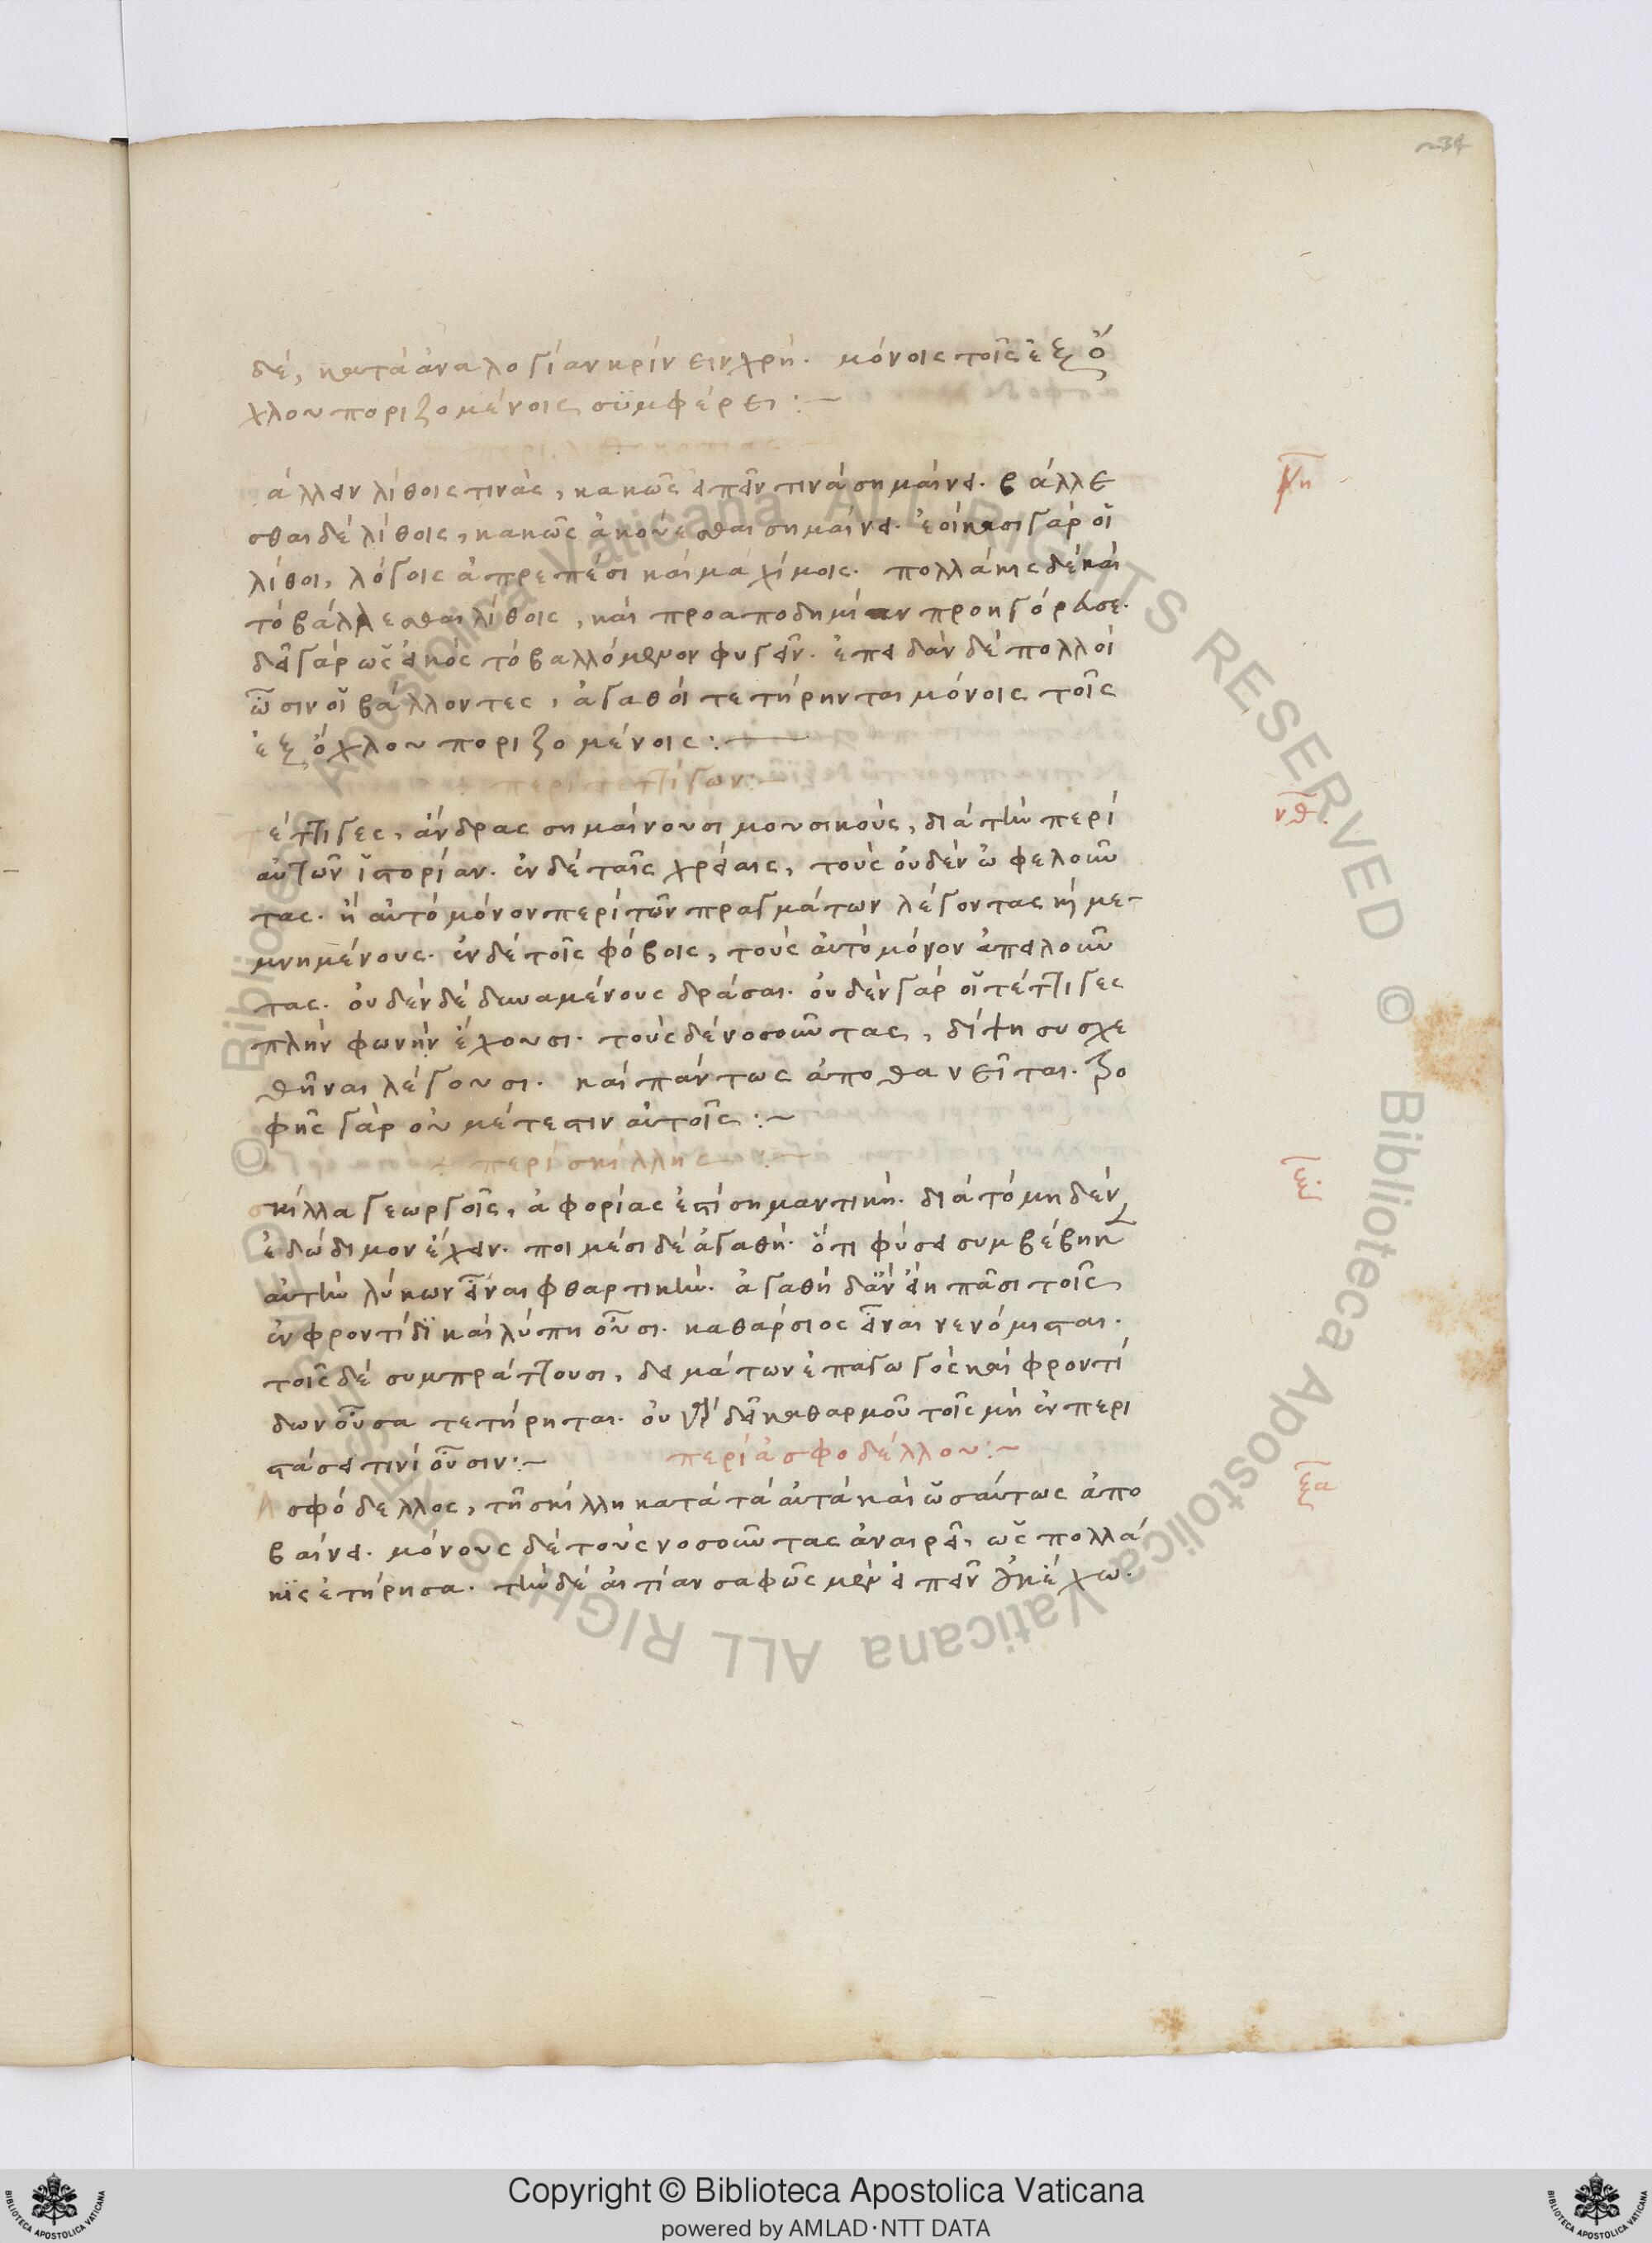 δέ, κατὰ ἀναλογίαν κρίνειν χρή. μόνοις τοῖς ἐξ ὄ
χλου ποριζομένοις συμφέρει :~
άλλειν λίθοις τινὰς, κακῶς εἰπεῖν τινὰ σημαίνει. βάλλε
σθαι δὲ λίθοις, κακῶς ἀκούεσθαι σημαίνει. ἐοίκασι γὰρ οἱ
λίθοι, λόγοις ἀπρεπέσι καὶ μαχίμοις. πολλάκις δὲ καὶ
τὸ βάλλεσθαι λίθοις, καὶ προαποδημίαν προηγόρευσε.
δεῖ γὰρ ὡς εἰκὸς τὸ βαλλόμενον φυγεῖν. ἐπειδὰν δὲ πολλοὶ
ὦσιν οἱ βάλλοντες, ἀγαθοὶ τετήρηνται μόνοις τοῖς
ἐξ ὄχλου ποριζομένοις :
περὶ τεττίγων :~
τέττιγες, ἄνδρας σημαίνουσι μουσικοὺς, διὰ τὴν περὶ
αὐτῶν ἱστορίαν. ἐν δὲ ταῖς χρείαις, τοὺς οὐδὲν ὠφελοῦν
τας. ἢ αὐτὸ μόνον περὶ τῶν πραγμάτων λέγοντας ἢ με-
μνημένους. ἐν δὲ τοῖς φόβοις, τοὺς αὐτὸ μόνον ἀπειλοῦν
τας. οὐδὲν δὲ δυναμένους δρᾶσαι. οὐδὲν γὰρ οἱ τέττιγες
πλὴν φωνὴν ἔχουσι. τοὺς δὲ νοσοῦντας, δίψῃ συσχε
θῆναι λέγουσι. καὶ πάντως ἀποθανεῖται. τρο
φῆς γὰρ οὐ μέτεστιν αὐτοῖς :~
περὶ σκίλλης :~
σκίλλα γεωργοῖς, ἀφορίας ἐστὶ σημαντική. διὰ τὸ μηδὲν
ἐδώδιμον ἔχειν. ποιμέσι δὲ ἀγαθή. ὅτι φύσει συμβέβηκεν
αὐτὴν λύκων εἶναι φθαρτικήν. ἀγαθὴ δ' ἂν εἴη πᾶσι τοῖς
ἐν φροντίδι καὶ λύπη οὖσι. καθάρσιος εἶναι νενόμισται.
τοῖς δὲ συμπράττουσι, δειμάτων ἐπαγωγὸς καὶ φροντί
δων οὖσα τετήρηται. οὐ γὰρ δεῖ καθαρμοῦ τοῖς μὴ ἐν περι
στάσει τινὶ οὖσιν :~ περὶ ἀσφοδέλλου :~
Ἀσφόδελλος, τῇ σκίλλη κατὰ τὰ αὐτὰ καὶ ὡσαύτως ἀπο
βαίνει. μόνους δὲ τοὺς νοσοῦντας ἀναιρεῖ, ὡς πολλά
κις ἐτήρησα. τὴν δὲ αἰτίαν σαφῶς μὲν εἰπεῖν οὐκ ἔχω.
νη
νθ.
ξ
ξα